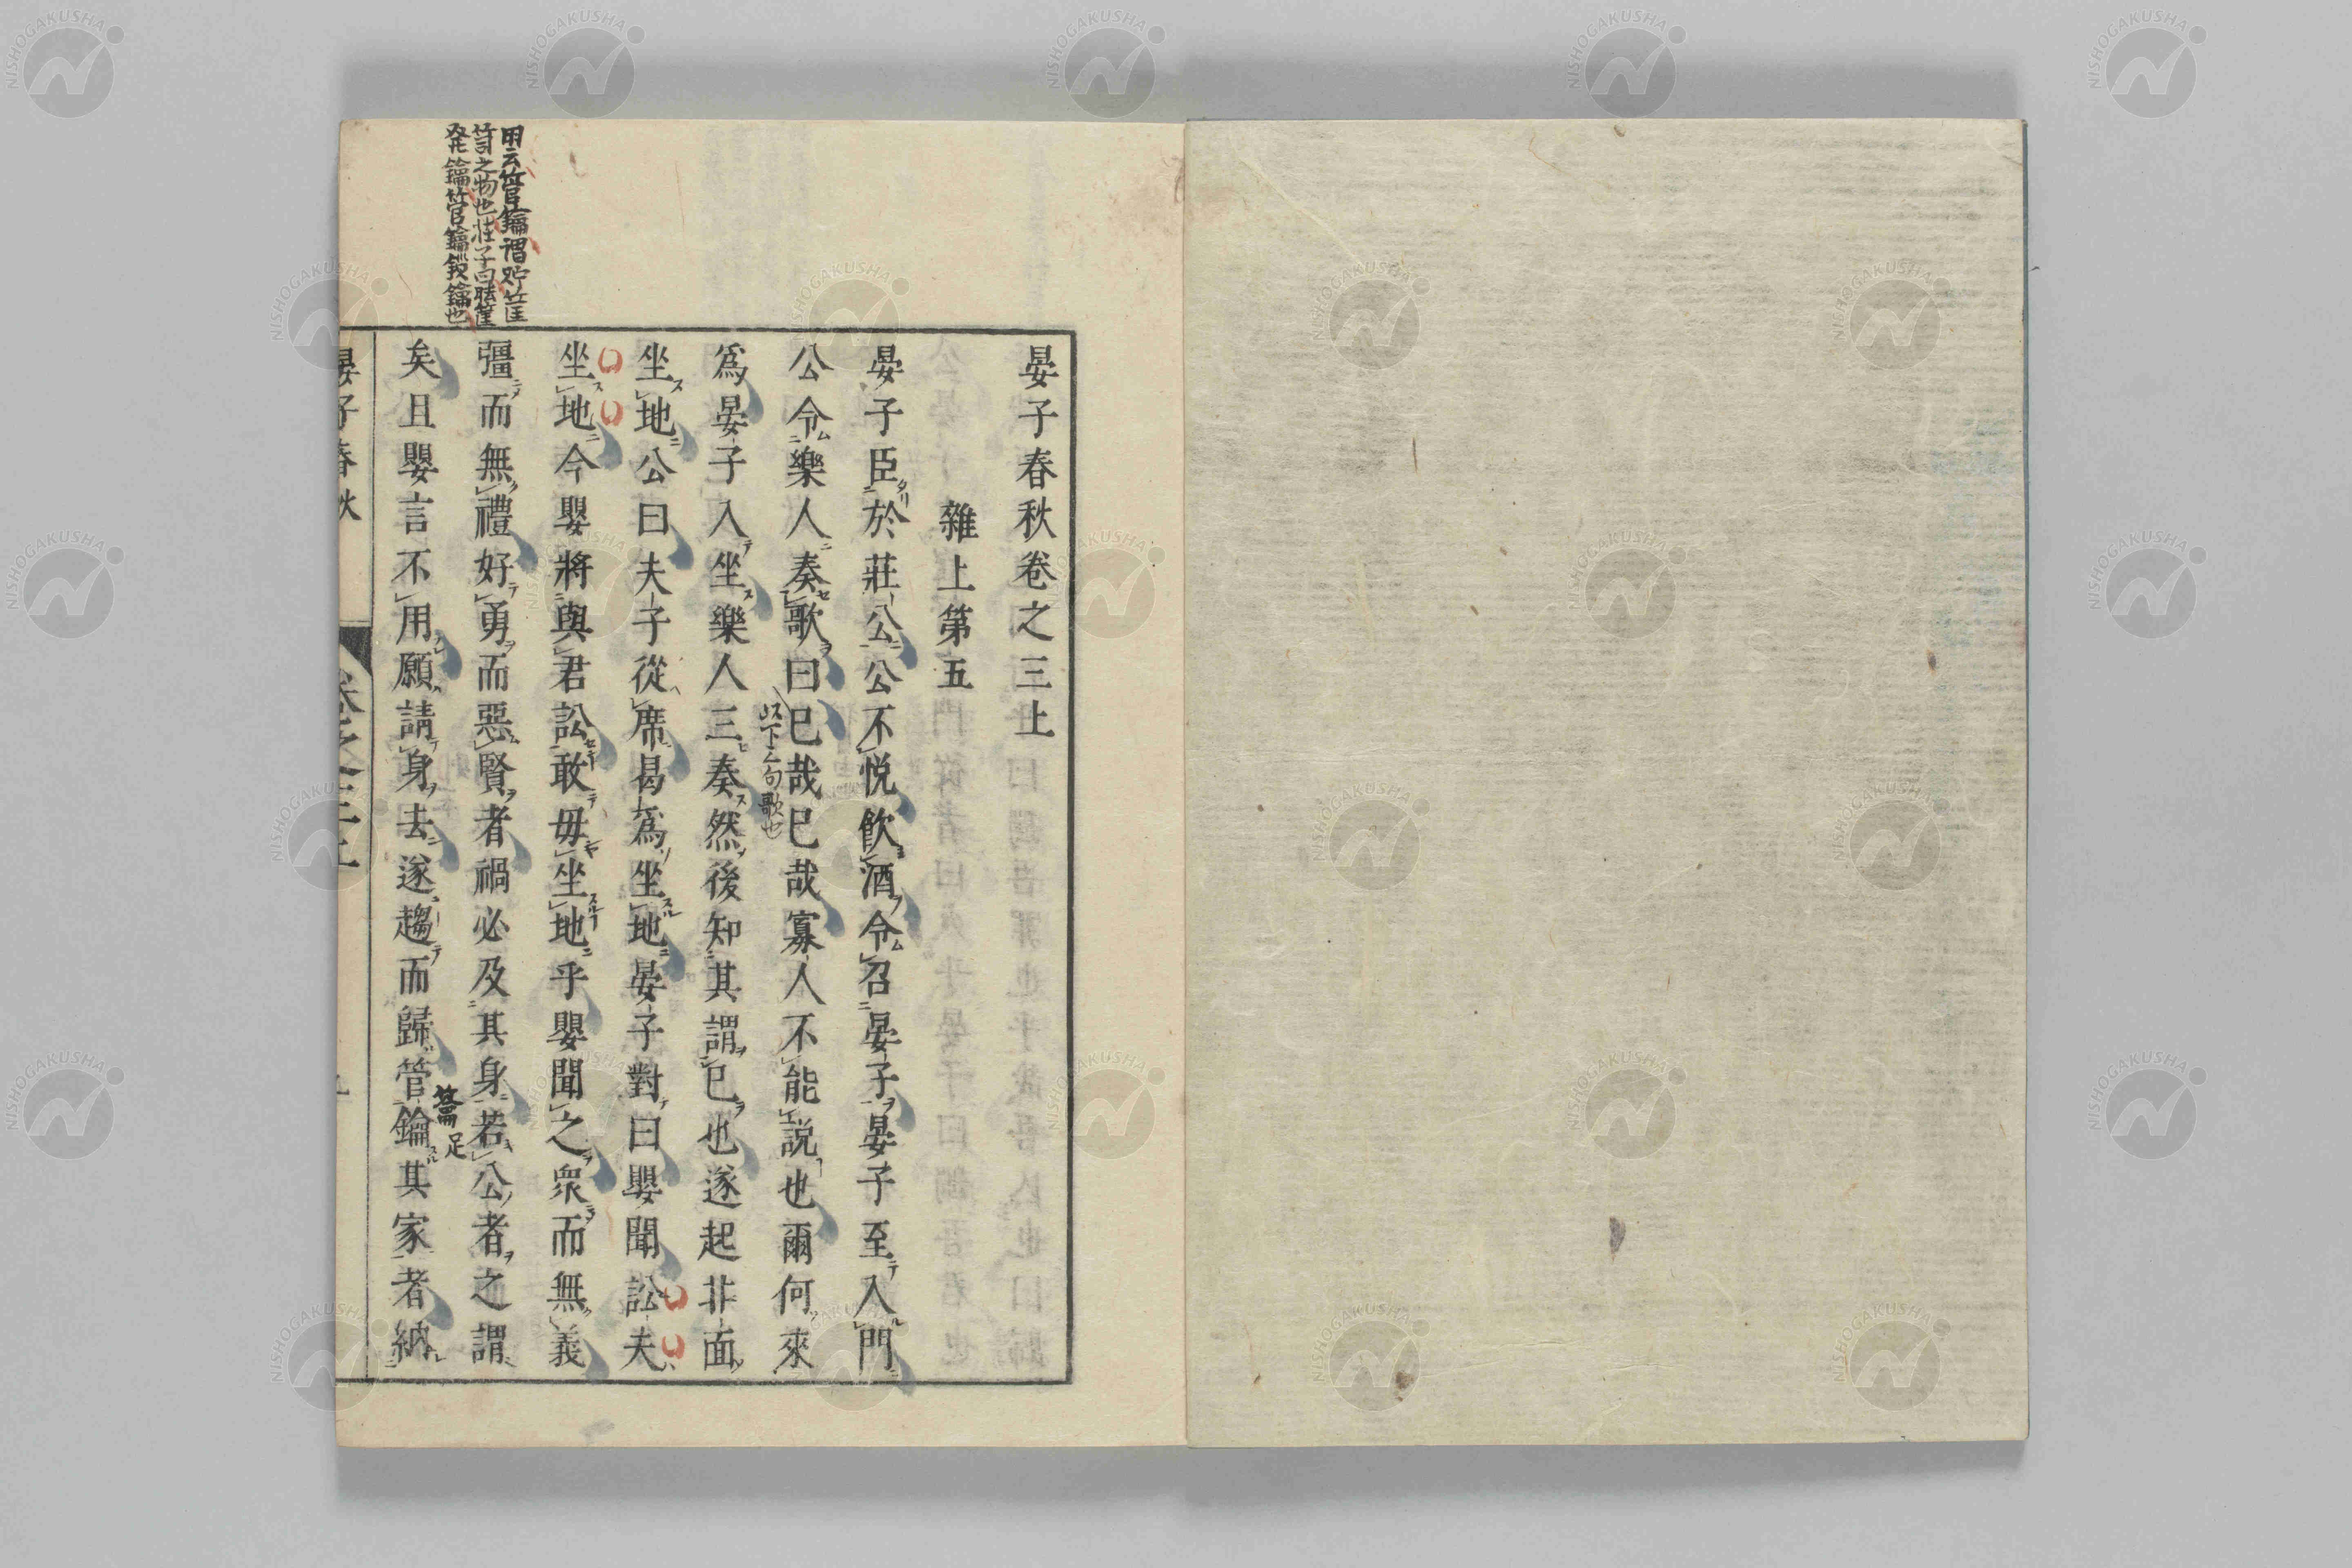 晏子春秋卷之三上
雜上第五
晏子臣於莊公公不悅飲酒令召晏子晏子至入門
公令樂人奏歌曰已哉已哉寡人不能說也爾何來
以下三句歌也
爲晏子入坐樂人三奏然後知其謂已也遂起北面
坐地公曰夫子從席曷爲坐地晏子對曰嬰聞訟夫
坐地今嬰將與君訟敢毋坐地乎嬰聞之衆而無義
彊而無禮好勇而惡賢者禍必及其身若公者之謂
矣且嬰言不用願請身去遂趨而歸管鑰其家者納
籥 足
用云管鑰謂貯筐
笥之物也莊子曰胠篋
発鑰管鑰鈒鑰也
晏子春秋
卷之三上
NISHOGAKUSHA